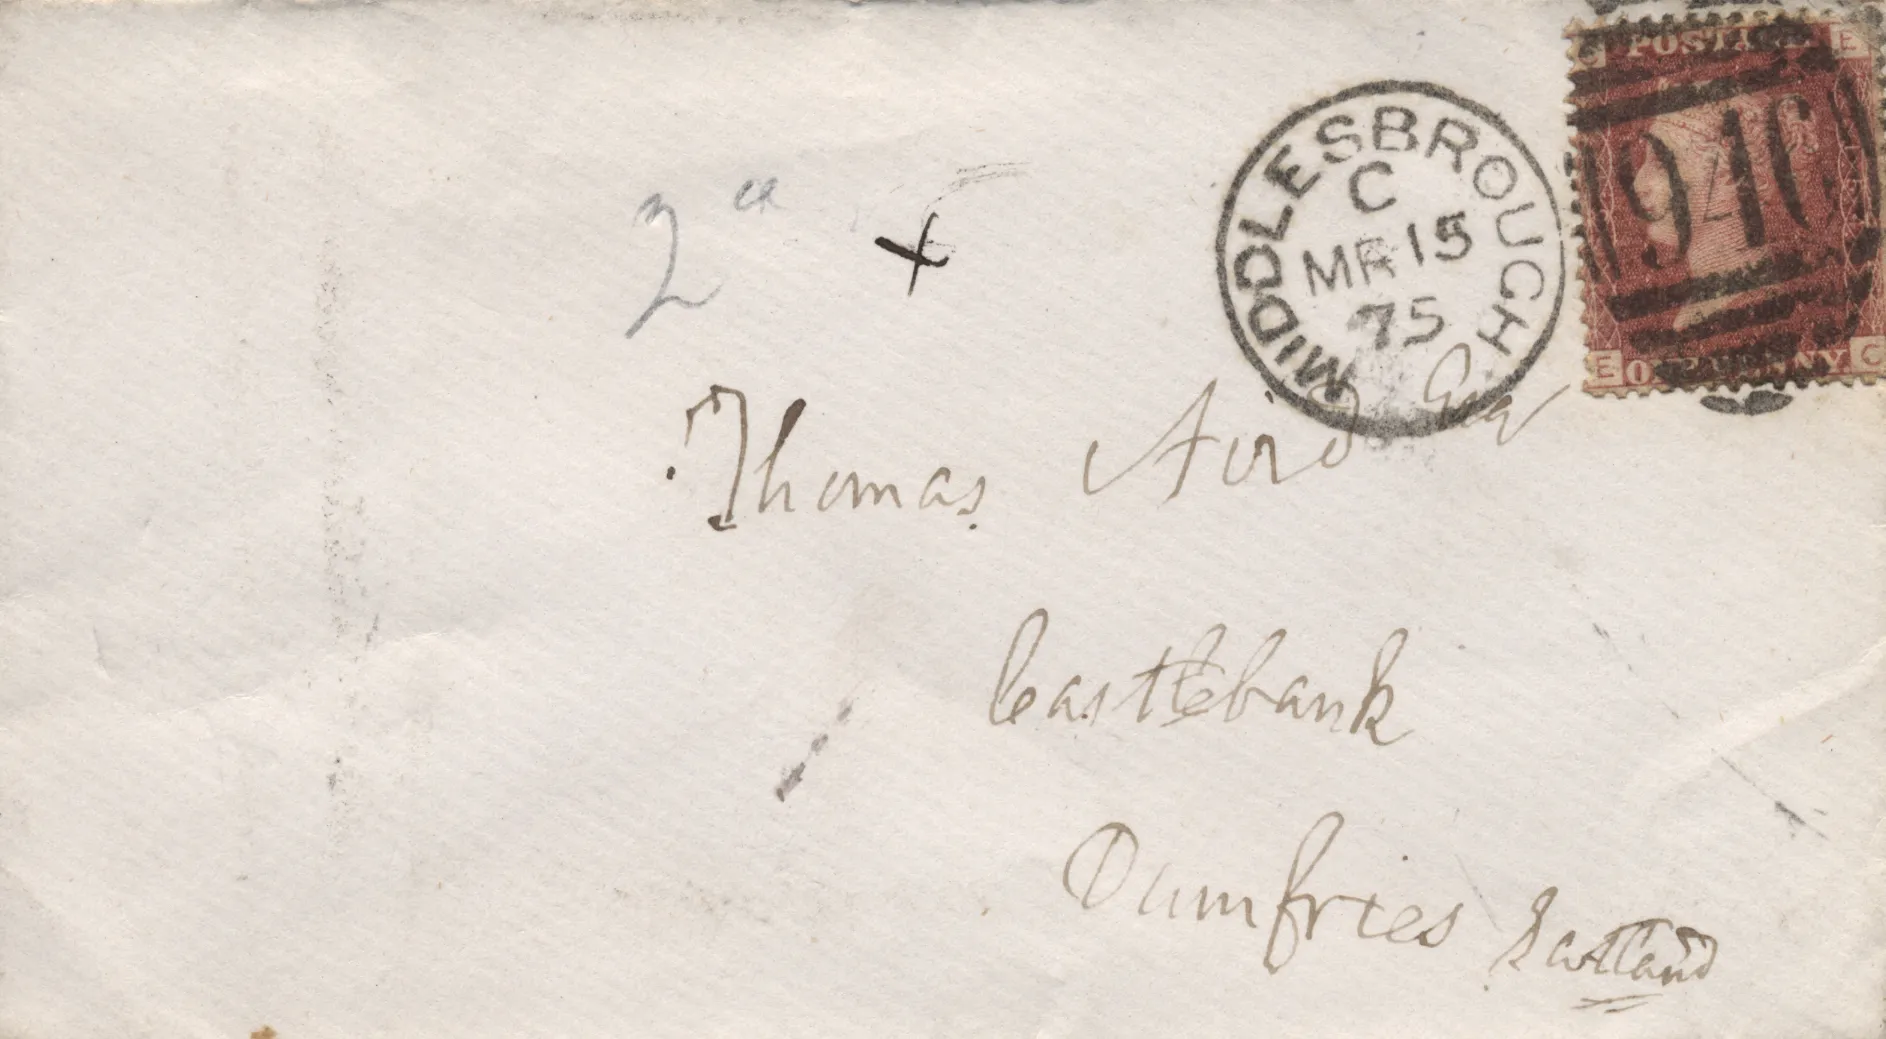 C POSTAGE E
MIDDLESBROUGH
C
MR 15
75
E ONE PENNY C
2
Thomas Aird Esq
Castlebank
Dumfries Scotland